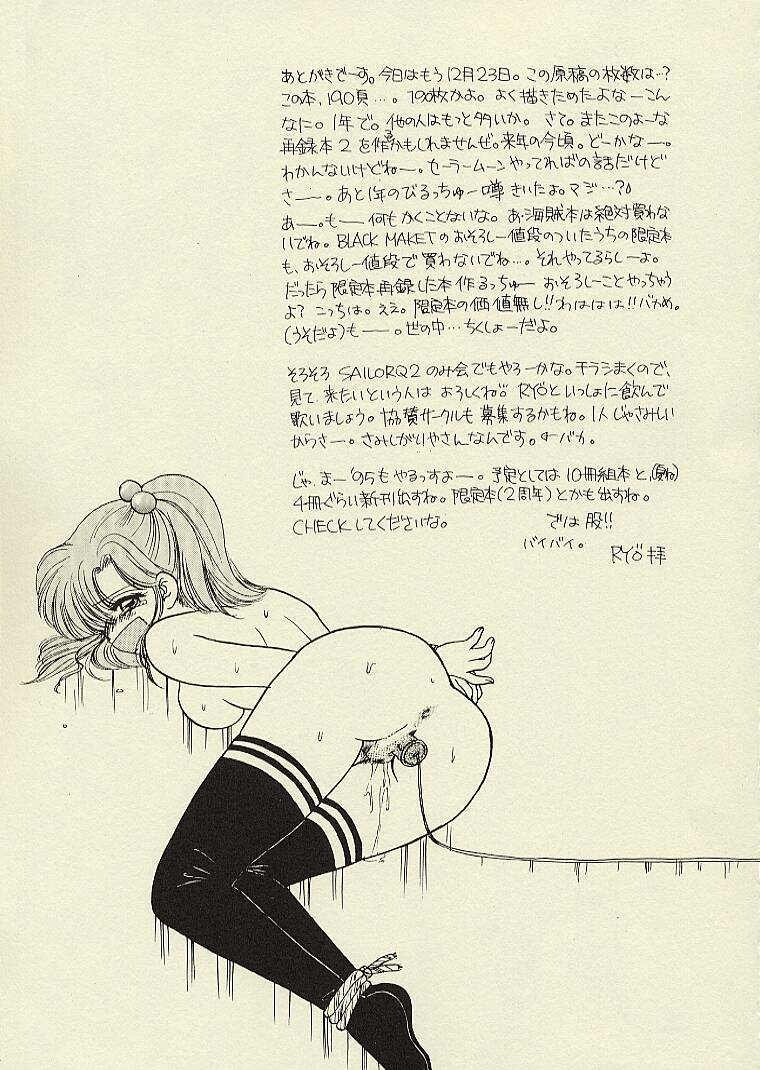 あとがきでーす。今日はもう12月23日。この原稿の枚数は…?
この本、190頁…。190枚かよ。よく描きためたよなーこん
なに。1年で。他の人はもっと多いか。さて。またこのよーな
再録本2を作るかもしれませんぜ。来年の今頃。どーかなー。
わかんないけどねー。セーラームーンやってればの話だけど
さー。あと1年のびるっちゅー噂きいたよ。マジ…?
あー。もー何もかくことないな。あ、海賊本は絶対買わな
いでね。BLACK MAKETのおそろしー値段のついたうちの限定本
も、おそろしー値段で買わないでね…。それやってるらしーよ。
だったら限定本再録した本作るっちゅーおそろしーことやっちゃう
よ?こっちは。ええ。限定本の価値無し!!わははは!!バカめ。
(うそだよ)もー。世の中…ちくしょーだよ。
そろそろ SAILORQ2のみ会でもやろーかな。チラシまくので、
見て、来たいという人はよろしくね。RYÖといっしょに飲んで
歌いましょう。協賛サークルも募集するかもね。1人じゃさみしい
からさー。さみしがりやさんなんです。←バカ。
じゃ、まー'95もやるっすよー。予定としては10冊組本と、(夏ね)
4冊ぐらい新刊出すね。限定本(2周年)とかも出すね。
CHECKしてくださいな。 では股!!
バイバイ。 RYÖ拝